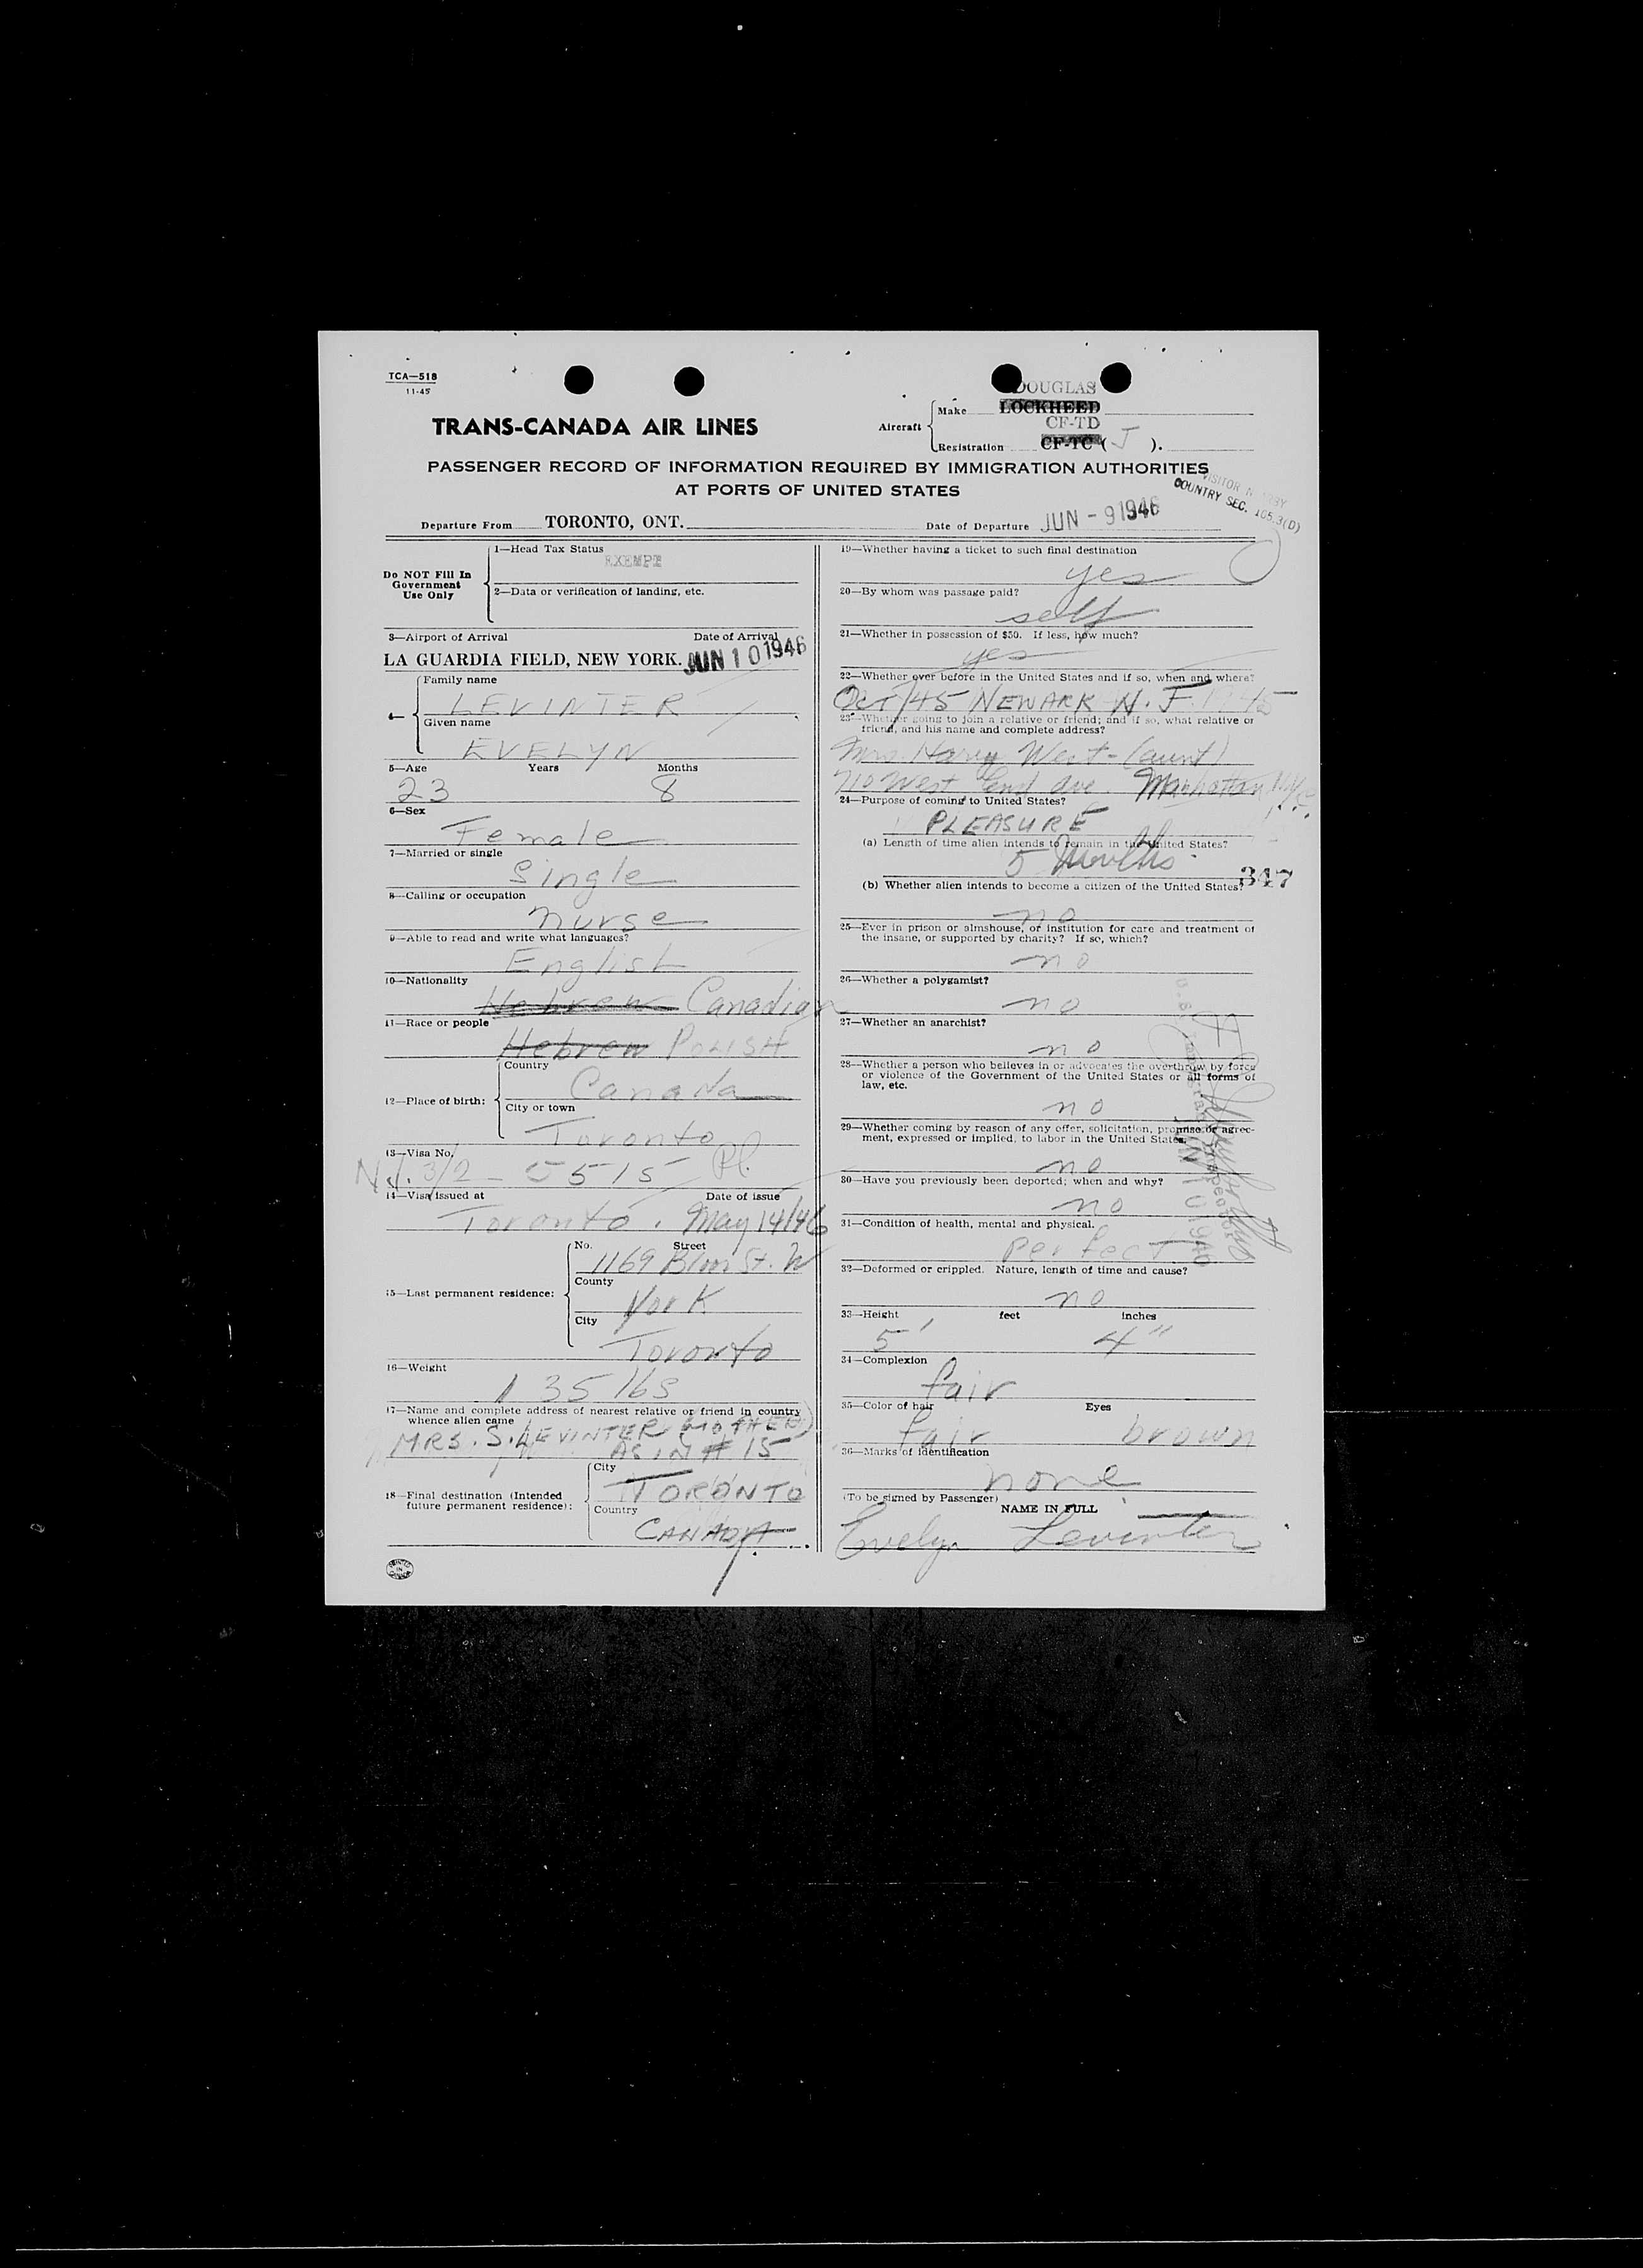 TCA—518
11-45
TRANS-CANADA AIR LINES
DOUGLAS
Aircraft
Make LOCKHEED
CF-TD
Registration CF-TC ( J ).
PASSENGER RECORD OF INFORMATION REQUIRED BY IMMIGRATION AUTHORITIES
AT PORTS OF UNITED STATES
VISITOR
COUNTRY SEC. 165.3(D)
Departure From TORONTO, ONT.
Date of Departure JUN - 9 1946
Do NOT Fill In
Government
Use Only
1—Head Tax Status
EXEMPT
2—Data or verification of landing, etc.
3—Airport of Arrival Date of Arrival
LA GUARDIA FIELD, NEW YORK. JUN 10 1946
4—
Family name
LEVINTER
Given name
EVELYN
5—Age Years Months
23 8
6—Sex
Female
7—Married or single
Single
8—Calling or occupation
nurse
9—Able to read and write what languages?
English
10—Nationality
Hebrew Canadian
11—Race or people
Hebrew POLISH
12—Place of birth:
Country
Canada
City or town
Toronto
13—Visa No.
3/2 - 5515
14—Visa issued at Date of issue
Toronto. May 14/46
15—Last permanent residence:
No. Street
1169 Bloor St. W
County
York
City
Toronto
16—Weight
135 lbs
17—Name and complete address of nearest relative or friend in country
whence alien came
MRS. S. LEVINTER (MOTHER)
AS IN # 15
18—Final destination (Intended
future permanent residence):
City
TORONTO
Country
CANADA
19—Whether having a ticket to such final destination
yes
20—By whom was passage paid?
self
21—Whether in possession of $50. If less, how much?
yes
22—Whether ever before in the United States and if so, when and where?
Oct/45 NEWARK N.J.
23—Whether going to join a relative or friend; and if so, what relative or
friend, and his name and complete address?
Mrs. Harry West - (aunt)
710 West End Ave. Manhattan, N.Y.
24—Purpose of coming to United States?
PLEASURE
(a) Length of time alien intends to remain in the United States?
5 Months
347
(b) Whether alien intends to become a citizen of the United States?
no
25—Ever in prison or almshouse, or institution for care and treatment of
the insane, or supported by charity? If so, which?
no
26—Whether a polygamist?
no
27—Whether an anarchist?
no
28—Whether a person who believes in or advocates the overthrow by force
or violence of the Government of the United States or all forms of
law, etc.
no
29—Whether coming by reason of any offer, solicitation, promise or agree-
ment, expressed or implied, to labor in the United States.
no
30—Have you previously been deported; when and why?
no
31—Condition of health, mental and physical.
perfect
32—Deformed or crippled. Nature, length of time and cause?
no
33—Height feet inches
5' 4"
34—Complexion
fair
35—Color of hair Eyes
fair brown
36—Marks of identification
none
(To be signed by Passenger)
NAME IN FULL
Evelyn Levinter